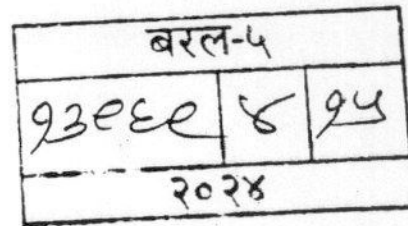 बरल-५
१३९६९ ४ १५
२०२४